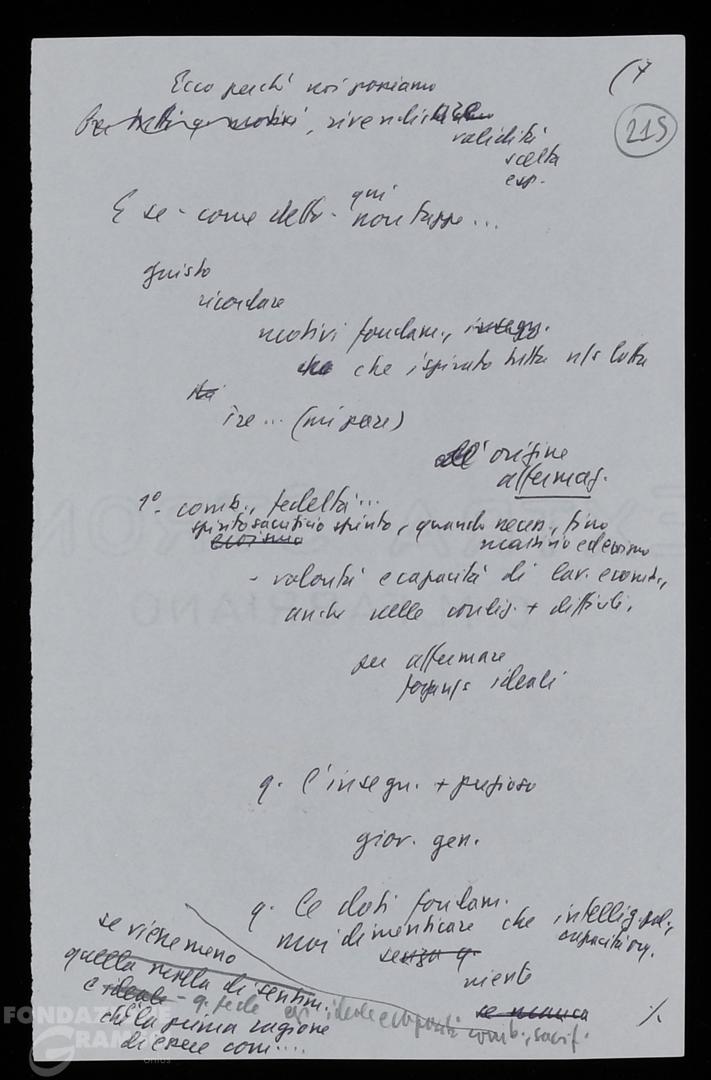 (7
215
Ecco perché noi possiamo
Per tutti q. motivi, rivendicare
validità
scelta
esp.
E se - come detto - qui
non fosse ...
giusto
ricordare
motivi fondam., insegn.
che ispirato tutta n/s lotta
ire ... (mi pare)
all'origine
affermaz.
1º- comb., fedeltà ...
spirito sacrificio spinto, quando necess., fino
eroismo
martirio ed eroismo
- volontà e capacità di lav. e comb.,
anche nelle condiz. + difficili,
per affermare
ideali
q. l'insegn. + prezioso
giov. gen.
q. le doti fondam.
mai dimenticare che intellig. pol.,
capacità org.
senza q.
niente
se manca
se viene meno
quella molla di sentim.
e ideale - q. fede
comb., sacrif.
ch'è la prima ragione
di essere com. ...
%
FONDAZIONE
GRAMSCI
onlus